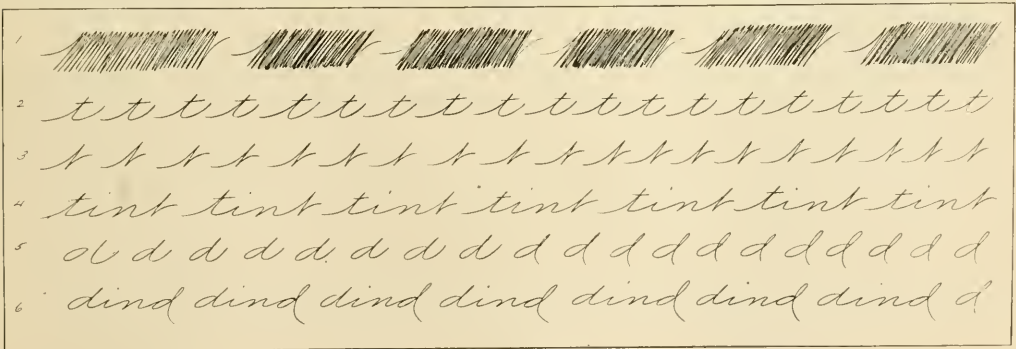 1
2 t t t t t t t t t t t t t t t t t t t
3 t t t t t t t t t t t t t t t t t t t
4 tint tint tint tint tint tint tint
5 d d d d d d d d d d d d d d d d d d d
6 dind dind dind dind dind dind dind d